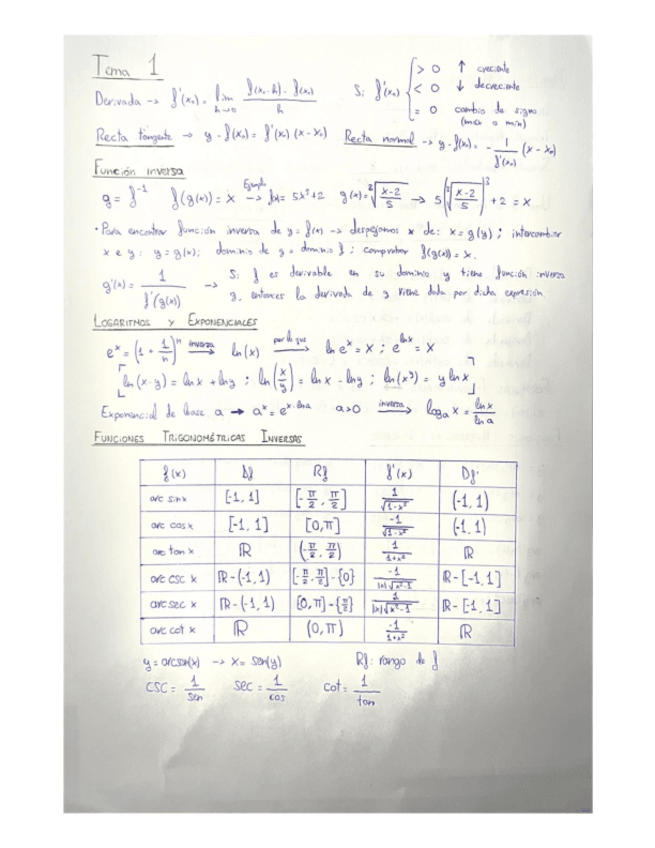 Tema 1
Derivada -> f'(x₀) = lim h→0 f(x₀-h) - f(x₀) / h
Si f'(x₀) { > 0 ↑ creciente
< 0 ↓ decreciente
= 0 cambio de signo (max o min)
Recta tangente -> y - f(x₀) = f'(x₀) (x - x₀) Recta normal -> y - f(x₀) = - 1/f'(x₀) (x - x₀)
Función inversa
g = f⁻¹ f(g(x)) = x Ejemplo -> f(x) = 5x³+2 g(x) = ∛(x-2/5) -> 5(∛(x-2/5))³ + 2 = x
· Para encontrar función inversa de y = f(x) -> despejamos x de: x = g(y) ; intercambiar
x e y: y = g(x); dominio de g = dominio f ; comprobar f(g(x)) = x.
g'(x) = 1/f'(g(x)) -> Si f es derivable en su dominio y tiene función inversa
g, entonces la derivada de g viene dada por dicha expresión
LOGARITMOS Y EXPONENCIALES
eˣ = (1 + 1/n)ⁿ inversa -> ln(x) por lo que -> ln eˣ = x ; e^lnx = x
[ ln(x·y) = lnx + lny ; ln(x/y) = lnx - lny ; ln(xʸ) = y lnx ]
Exponencial de base a -> aˣ = e^x·lna a>0 inversa -> logₐ x = lnx/lna
FUNCIONES TRIGONOMÉTRICAS INVERSAS
f(x) Df Rf f'(x) Df'
arc sin x [-1, 1] [-π/2, π/2] 1/√(1-x²) (-1, 1)
arc cos x [-1, 1] [0, π] -1/√(1-x²) (-1, 1)
arc tan x ℝ (-π/2, π/2) 1/(1+x²) ℝ
arc csc x ℝ-(-1, 1) [-π/2, π/2]-{0} -1/(|x|√(x²-1)) ℝ-[-1, 1]
arc sec x ℝ-(-1, 1) [0, π]-{π/2} 1/(|x|√(x²-1)) ℝ-[-1, 1]
arc cot x ℝ (0, π) -1/(1+x²) ℝ
y = arcsen(x) -> x = sen(y) Rf: rango de f
csc = 1/sen sec = 1/cos cot = 1/tan